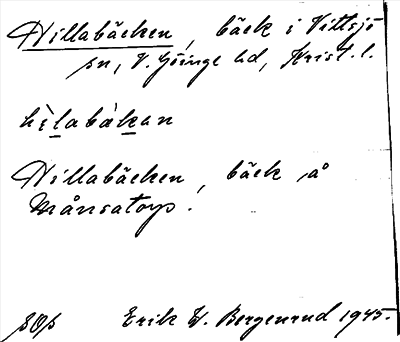 Hillabäcken, bäck i Vittsjö
sn, V. Göinge hd, Krist. l.
hìlabàkan
Hillabäcken, bäck å
Månsatorp.
Erik W. Bergenrud 1945.